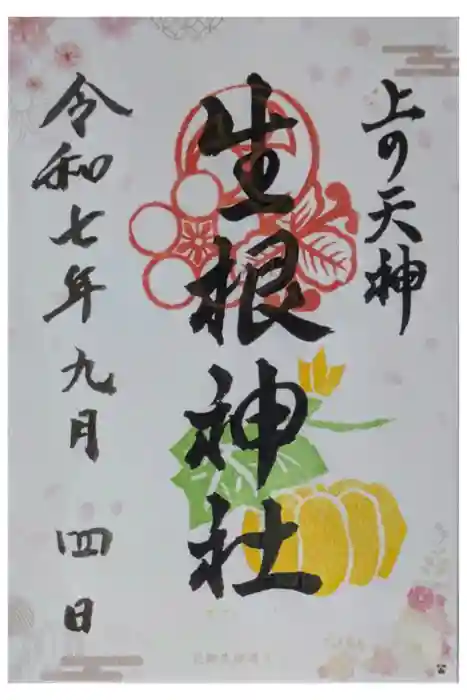 上の天神
生根神社
令和七年九月四日